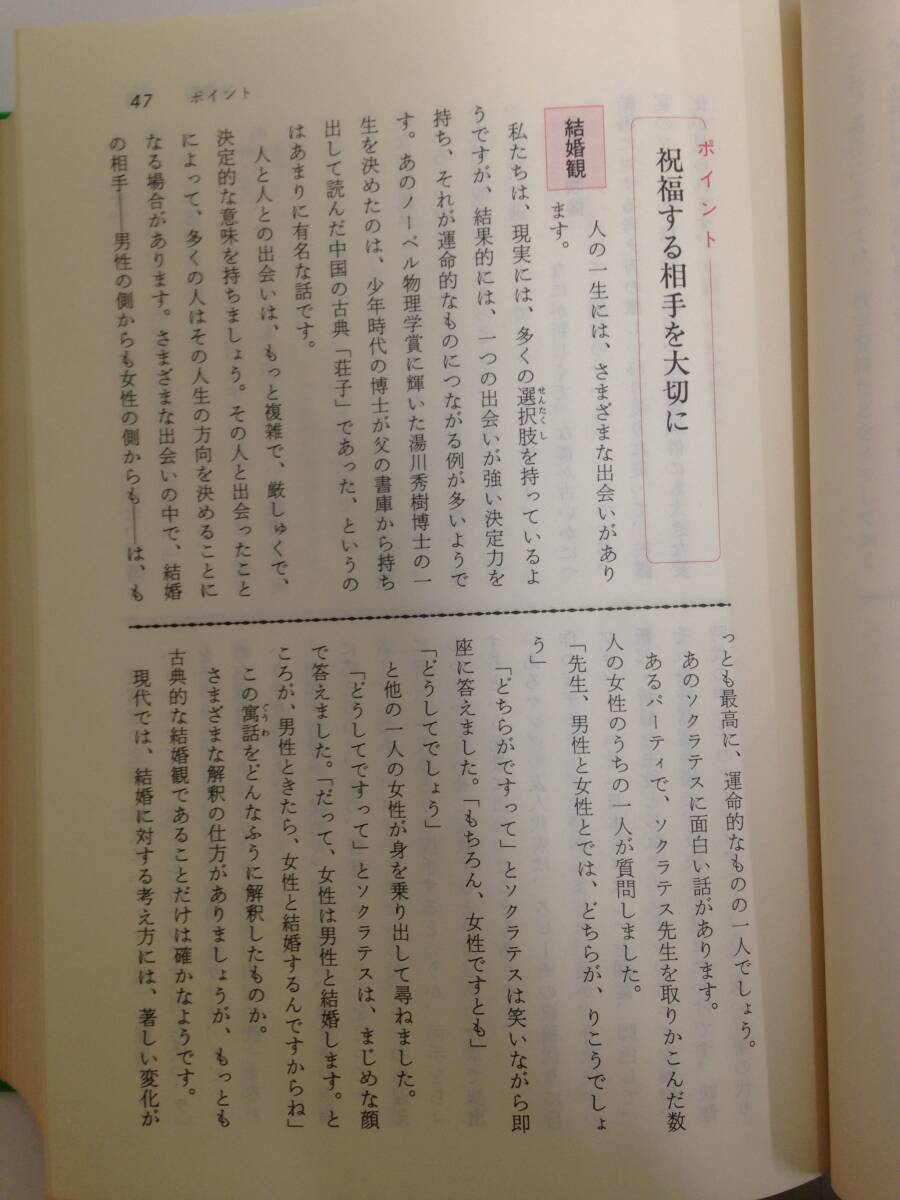 47 ポイント
ポイント
祝福する相手を大切に
結婚観
人の一生には、さまざまな出会いがあり
ます。
私たちは、現実には、多くの選択肢を持っているよ
せんたくし
うですが、結果的には、一つの出会いが強い決定力を
持ち、それが運命的なものにつながる例が多いようで
す。あのノーベル物理学賞に輝いた湯川秀樹博士の一
生を決めたのは、少年時代の博士が父の書庫から持ち
出して読んだ中国の古典「荘子」であった、というの
はあまりに有名な話です。
人と人との出会いは、もっと複雑で、厳しゅくで、
決定的な意味を持ちましょう。その人と出会ったこと
によって、多くの人はその人生の方向を決めることに
なる場合があります。さまざまな出会いの中で、結婚
の相手――男性の側からも女性の側からも――は、も
っとも最高に、運命的なものの一人でしょう。
あのソクラテスに面白い話があります。
あるパーティで、ソクラテス先生を取りかこんだ数
人の女性のうちの一人が質問しました。
「先生、男性と女性とでは、どちらが、りこうでしょ
う」
「どちらがですって」とソクラテスは笑いながら即
座に答えました。「もちろん、女性ですとも」
「どうしてでしょう」
と他の一人の女性が身を乗り出して尋ねました。
「どうしてですって」とソクラテスは、まじめな顔
で答えました。「だって、女性は男性と結婚します。と
ころが、男性ときたら、女性と結婚するんですからね」
この寓話をどんなふうに解釈したものか。
ぐうわ
さまざまな解釈の仕方がありましょうが、もっとも
古典的な結婚観であることだけは確かなようです。
現代では、結婚に対する考え方には、著しい変化が